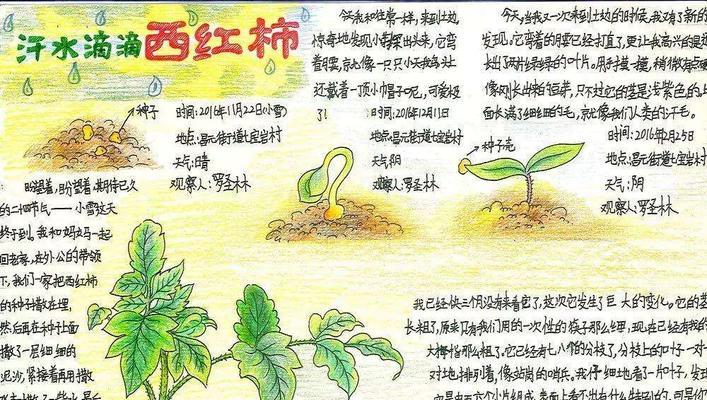 汗水滴滴西红柿
种子
时间:2016年11月22日(小雪)
地点:昌元街道七宝岩村
天气:晴
观察人:罗圣林
盼望着,盼望着,期待已久
的二十四节气——小雪这天
终于到。我和妈妈一起
回老家,在外公的带领
下,我们一家把西红柿
的种子撒在埋,
然后再在种子上面
撒了一层细细的
泥沙,紧接着再用撒
今天我和往常一样,来到土边
惊奇地发现小苗探出头来,它弯
着腰,就像一只只小天鹅头上
还戴着一顶小帽子呢,可爱极
了!
时间:2016年12月11日
地点:昌元街道七宝岩村
天气:阴
观察人:罗圣林
今天,当我又一次来到土边的时候,我又有了新的
发现。它弯着的腰已经打直了,更让我高兴的是还
长出了两片绿绿的叶片。用手摸一摸,稍微有点硬
像刚长出来的豆芽,只不过它的茎是浅紫色的,上
面长满了细细的毛,就像我们人类的汗毛。
种子壳
时间:2016年2月25日
地点:昌元街道七宝岩村
天气:阴
观察人:罗圣林
我已经快三个月没有来看它了,这次它发生了巨大的变化。它的茎
长粗了,原来只有我们用的一次性的筷子那么细,现在已经有我的
大拇指那么粗了。它已经有七八个的分枝了,分枝上的叶子一对
对地排列着,像站岗的哨兵。我仔细地看一片叶子,发现